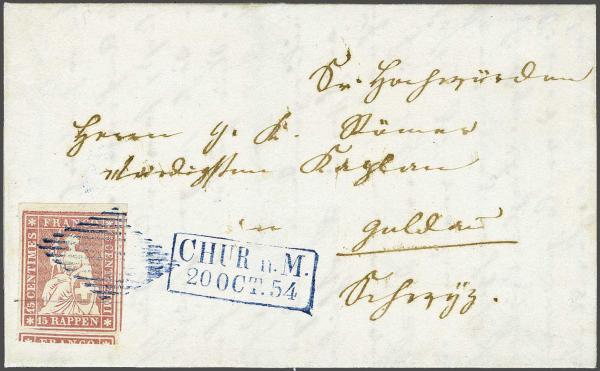 Sr. Hochwürden
Herrn J. K. Römer
würdigster Kaplan
in Goldau
Schwyz.
FRANCO
15 CENTIMES
CENTIMES
15 RAPPEN
FRANCO
CHUR n. M.
20 OCT. 54